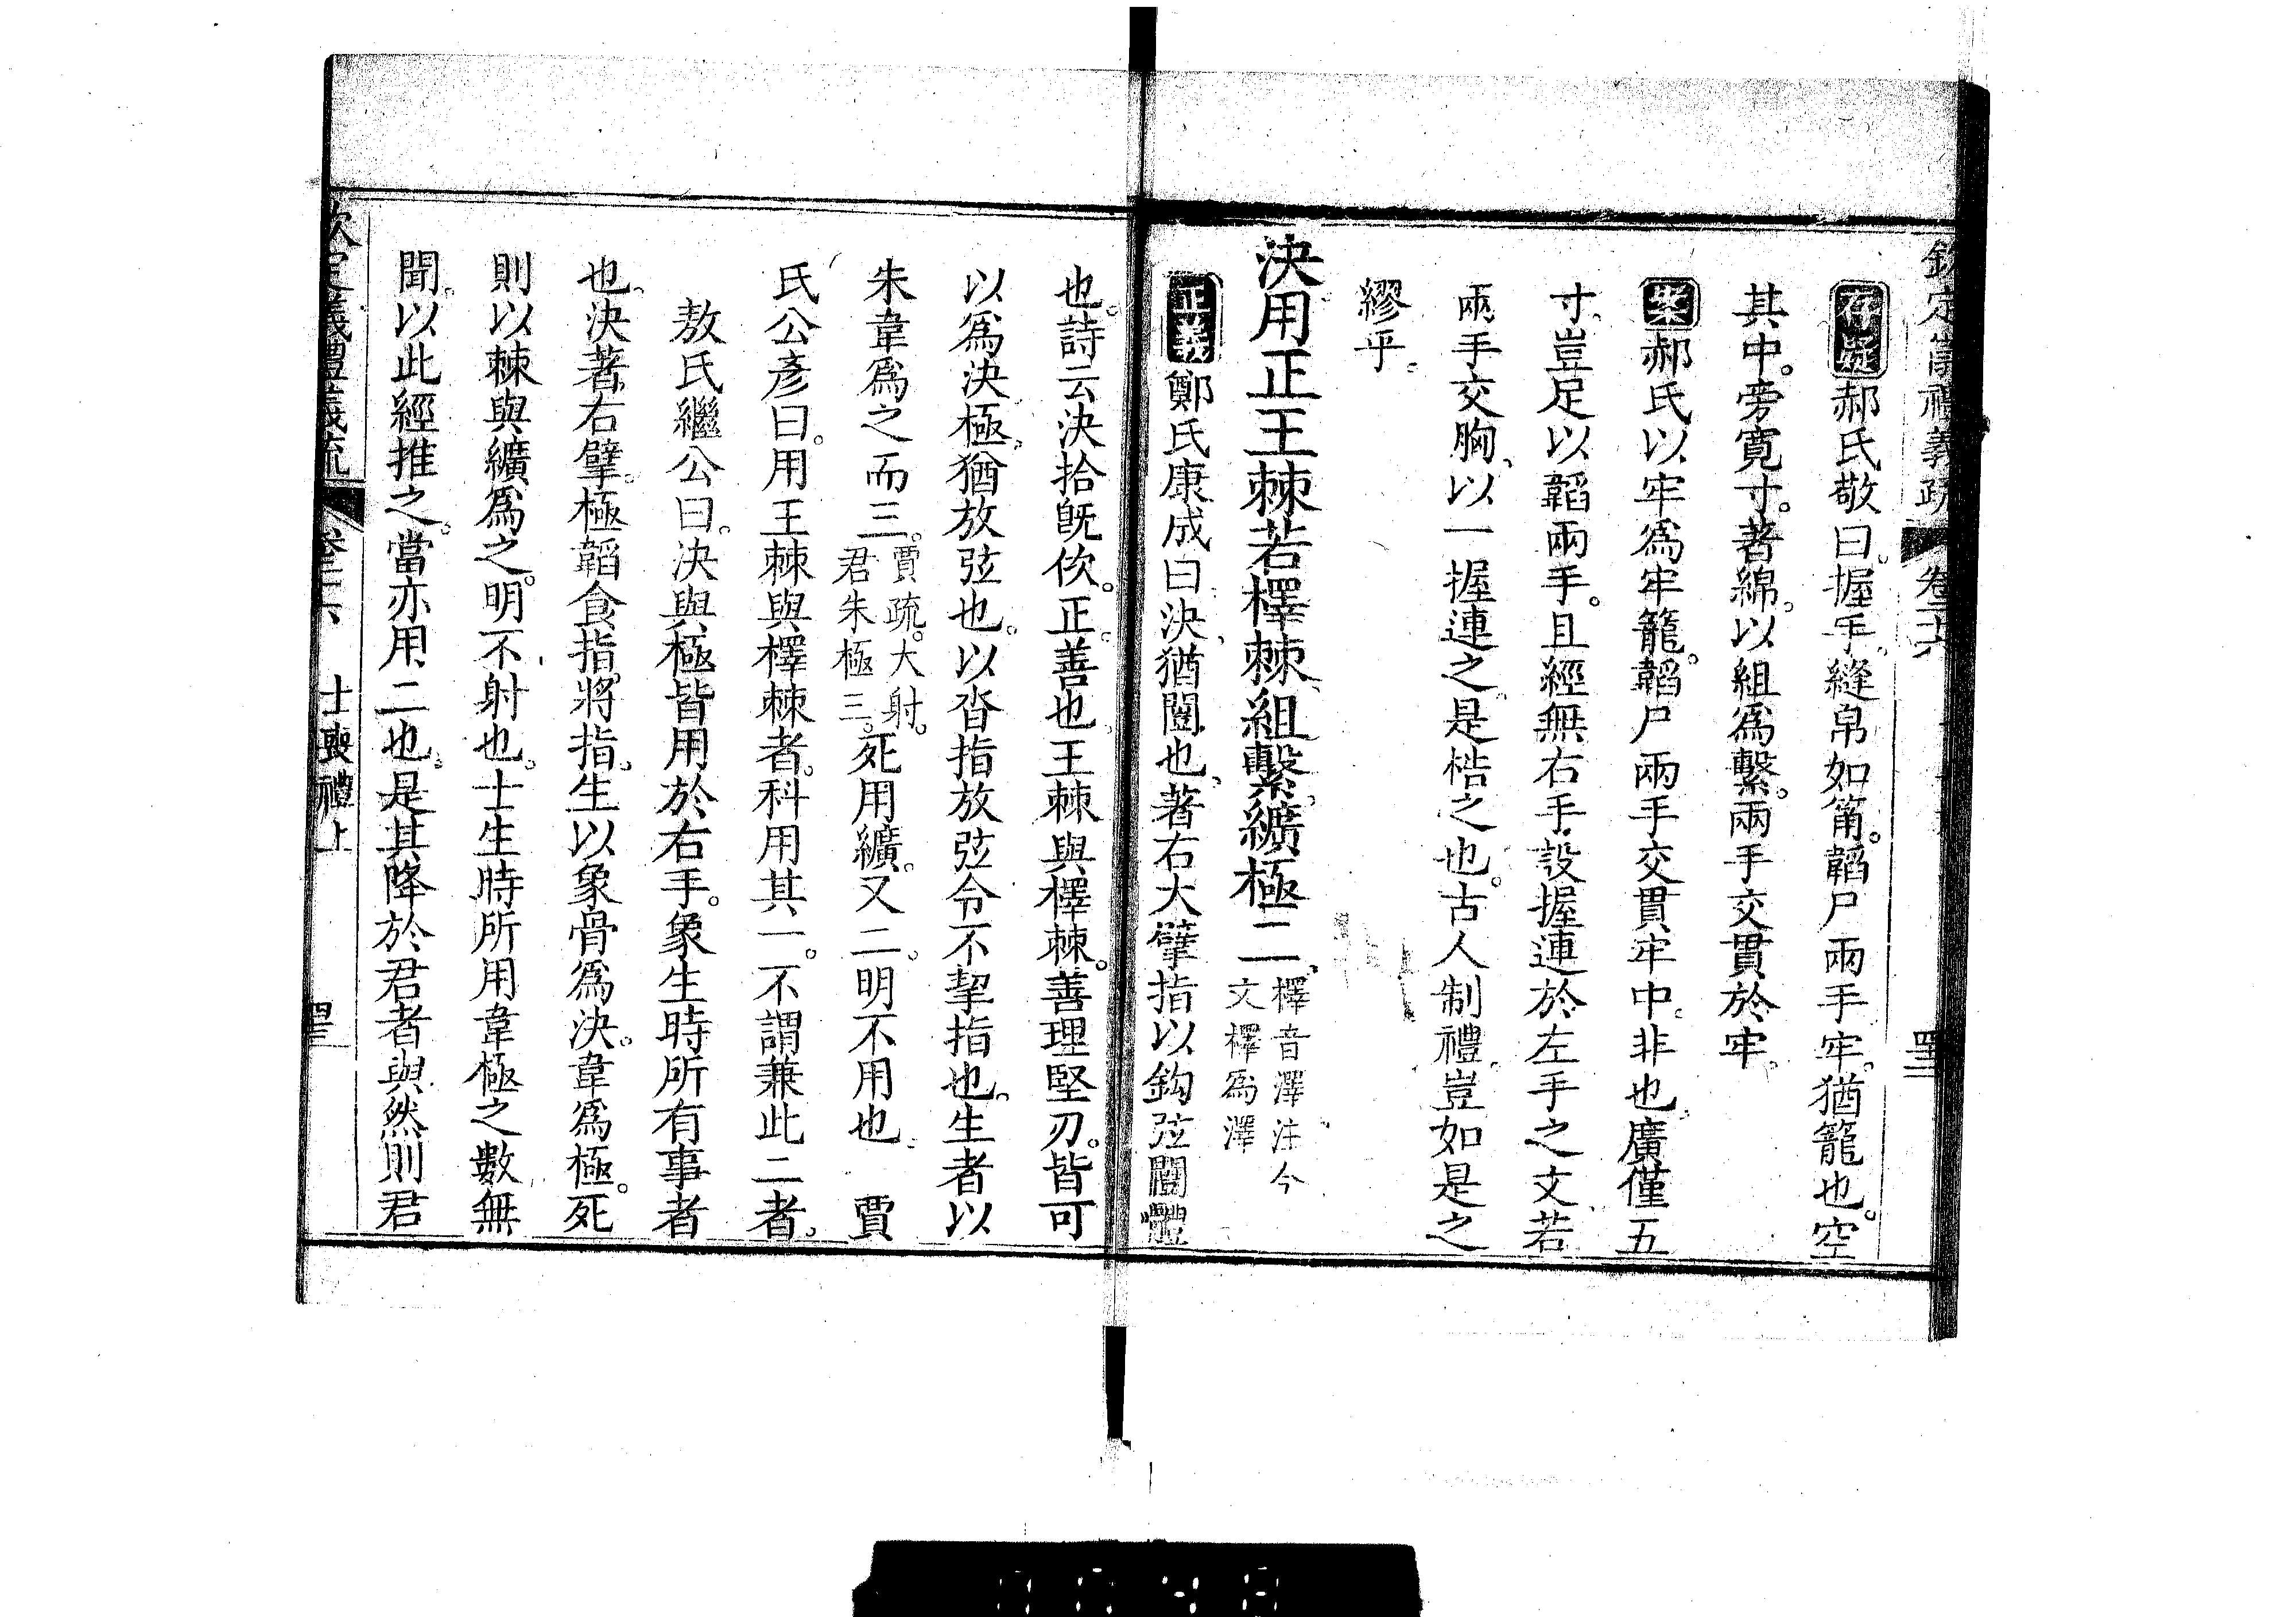 欽定儀禮義疏 卷二十六
存疑郝氏敬曰。握手。縫帛如筩。韜尸兩手。牢。猶籠也。空
其中。旁寬寸。著綿。以組爲繫。兩手交貫於牢。
案郝氏以牢爲牢籠。韜尸兩手交貫牢中。非也。廣僅五
寸。豈足以韜兩手。且經無右手。設握連於左手之文。若
兩手交胸、以一握連之。是梏之也。古人制禮。豈如是之
繆乎。
決用正王棘若檡棘、組繫、纊極二、檡音澤注今
文檡爲澤
正義鄭氏康成曰決、猶闓也、著右大擘指以鈎弦闓體
也。詩云决拾旣佽。正善也、王棘與檡棘。善理堅刃。皆可
以爲決極、猶放弦也。以沓指放弦令不挈指也。生者以
朱韋爲之而三。賈疏。大射。
君朱極三。死用纊。又二。明不用也 賈
氏公彥曰。用王棘與檡棘者。科用其一。不謂兼此二者。
敖氏繼公曰。决與極皆用於右手。象生時所有事者
也。決著右擘。極韜食指。將指。生以象骨爲決。韋爲極。死
則以棘與纊爲之。明不射也。士生時所用韋極之數無
聞。以此經推之。當亦用二也。是其降於君者與然則君
欽定儀禮義疏 卷二十六 士喪禮上